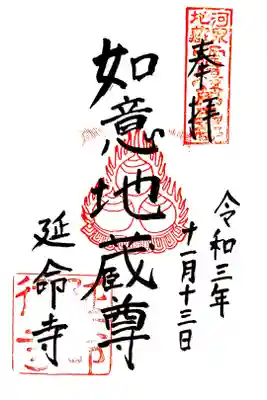 奉拝
令和三年
十一月十三日
如意地蔵尊
延命寺